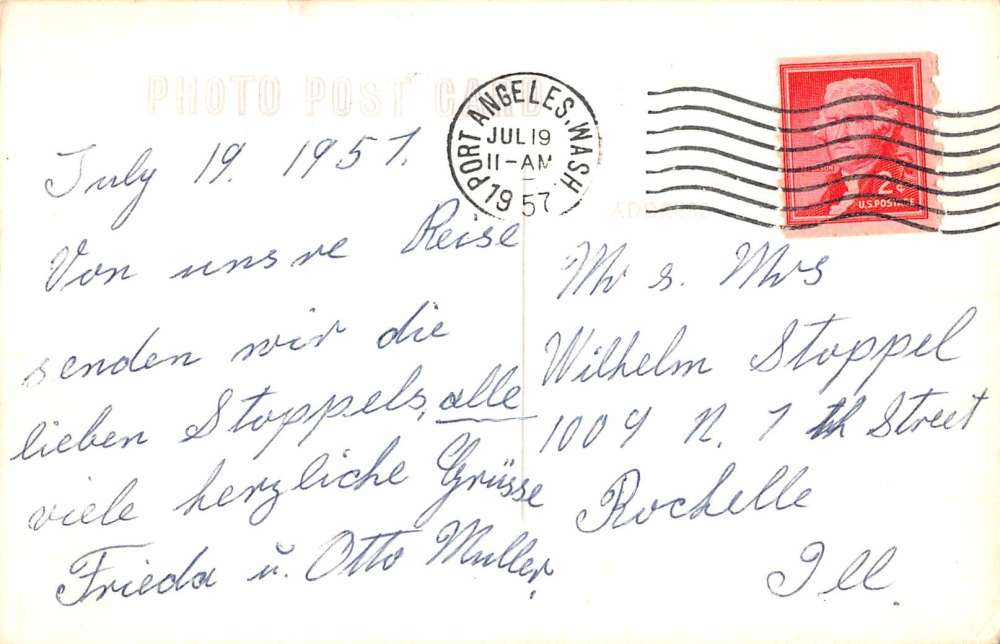 PHOTO POST CARD
PORT ANGELES, WASH.
JUL 19
11-AM
1957
2¢
U.S. POSTAGE
ADDRESS
July 19. 1957.
Von unsre Reise
senden wir die
lieben Stoppels, alle
viele herzliche Grüsse
Frieda u. Otto Muller.
Mr s. Mrs
Wilhelm Stoppel
1009 N. 7 th Street
Rochelle
Ill.